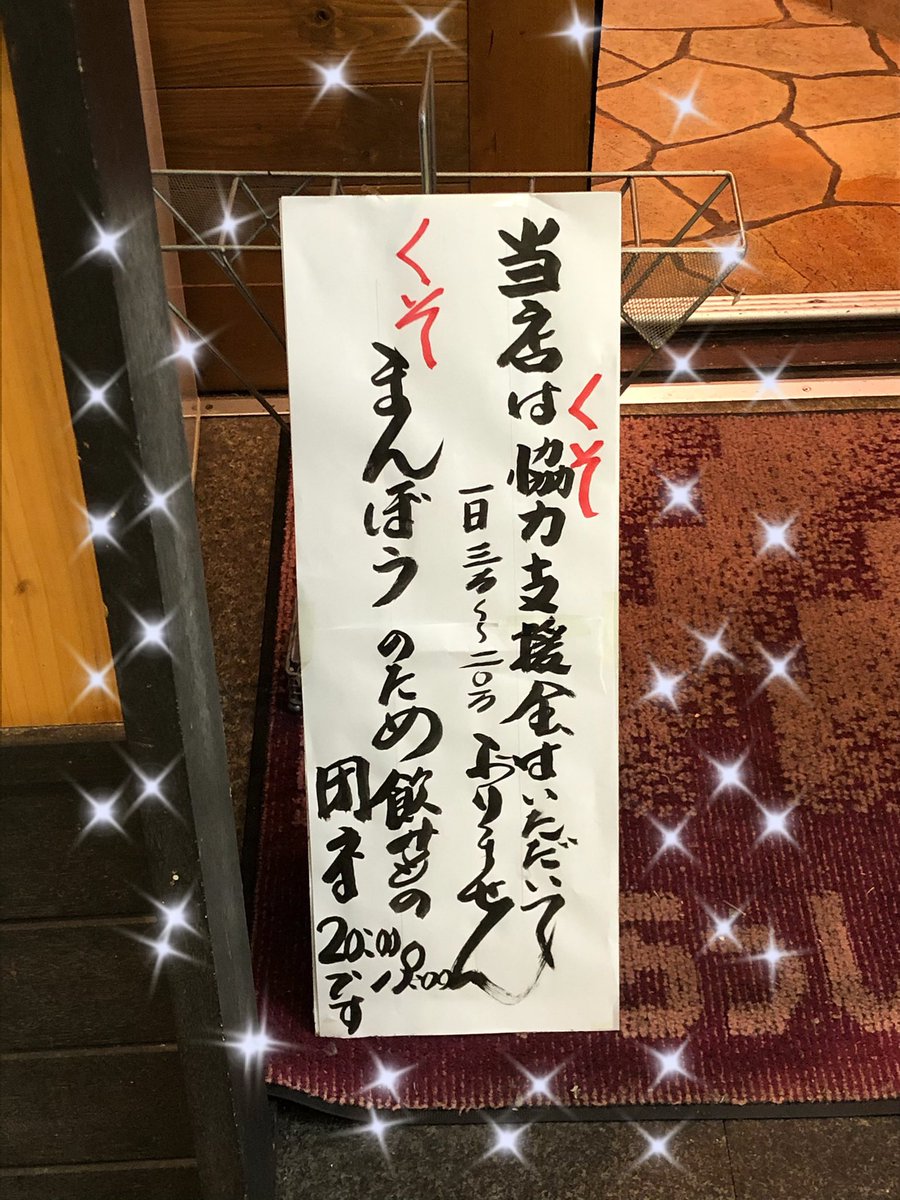 くそ
当店は協力支援金はいただいて
一日三万〜二〇万
おりません
くそ
まんぼうのため飲
20:00です